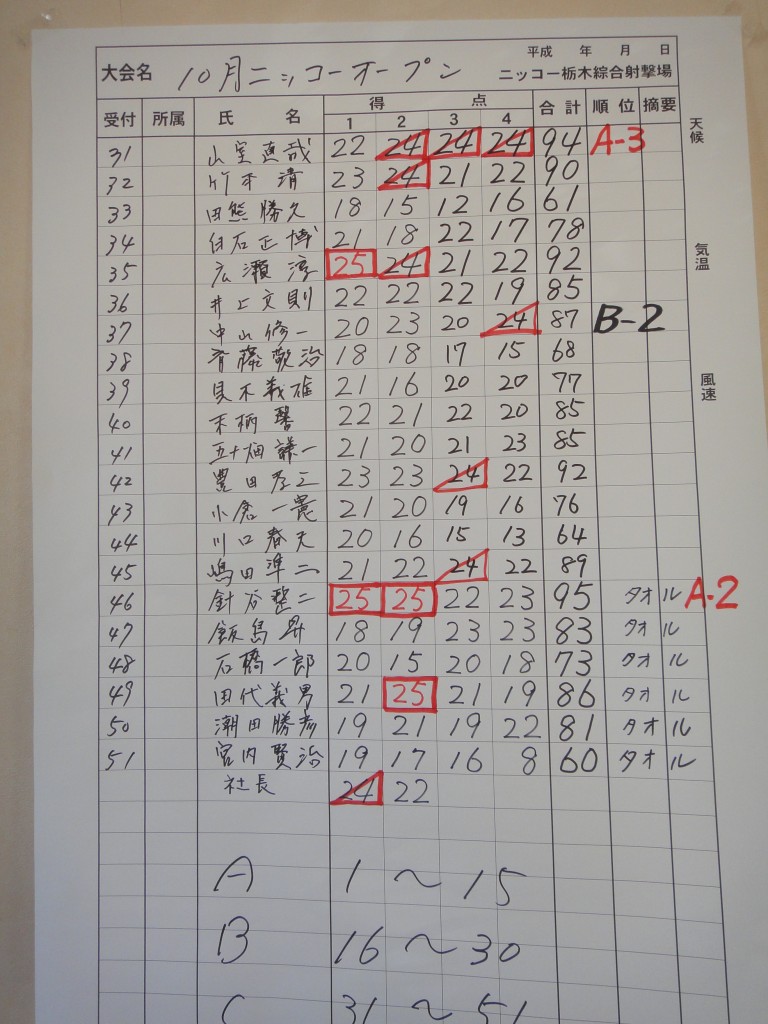 平成 年 月 日
大会名 10月ニッコーオープン ニッコー栃木綜合射撃場
受付 所属 氏 名 得 点 合計 順位 摘要
1 2 3 4
天候
31 山室直哉 22 24 24 24 94 A-3
32 竹本清 23 24 21 22 90
33 田熊勝久 18 15 12 16 61
34 白石正博 21 18 22 17 78
気温
35 広瀬淳 25 24 21 22 92
36 井上文則 22 22 22 19 85
37 中山修一 20 23 20 24 87 B-2
38 斉藤敬治 18 18 17 15 68
風速
39 貝木義雄 21 16 20 20 77
40 22 21 22 20 85
41 五十畑謙一 21 20 21 23 85
42 豊田 23 23 24 22 92
43 小倉一 21 20 19 16 76
44 川口春夫 20 16 15 13 64
45 嶋田準二 21 22 24 22 89
46 針谷整二 25 25 22 23 95 タオル A-2
47 飯島昇 18 19 23 23 83 タオル
48 石橋一郎 20 15 20 18 73 タオル
49 田代義男 21 25 21 19 86 タオル
50 潮田勝彦 19 21 19 22 81 タオル
51 宮内賢治 19 17 16 8 60 タオル
社長 24 22
A 1～15
B 16～30
C 31～51